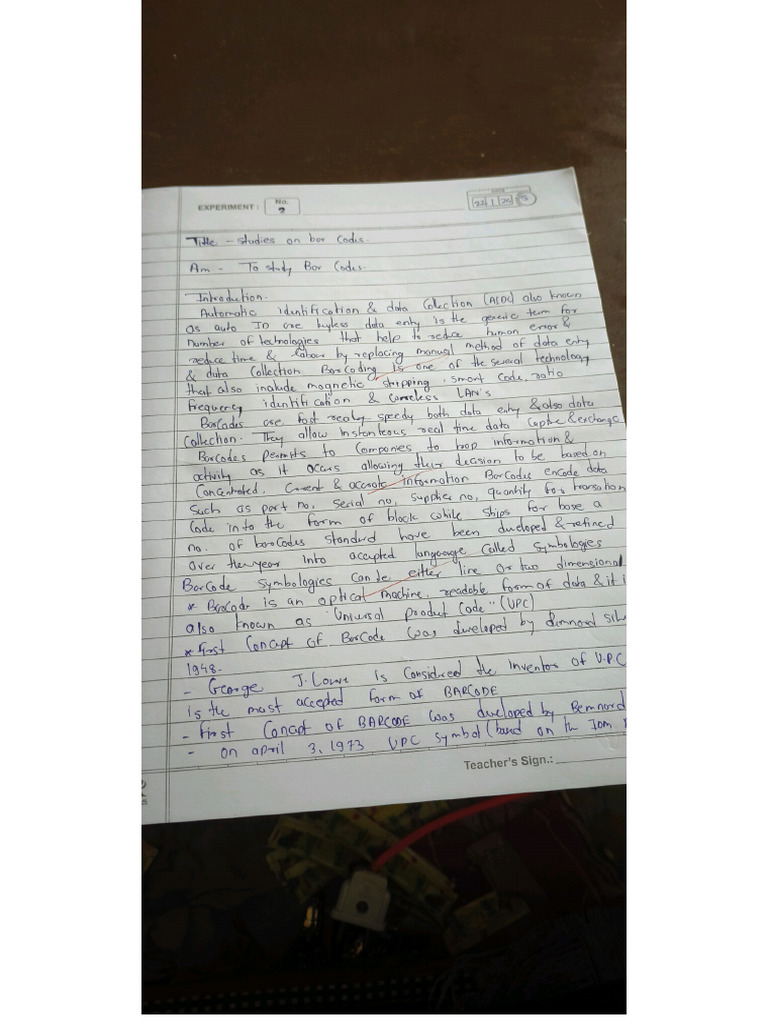 EXPERIMENT : No. 2
DATE 22/1/25
Title - Studies on bar Codes.
Am - To study Bar Codes.
Introduction.
Automatic identification & data Collection (AIDC) also known
as auto ID are keyless data entry is the generic term for
number of technologies that help to reduce human error &
reduce time & labour by replacing manual method of data entry
& data Collection Barcoding is one of the several technology
that also include magnetic stripping, smart code, ratio
frequency identification & wireless LAN's
BarCodes are fast realy speedy both data entry & also data
Collection. They allow instanteous real time data Captre & exchange
Barcodes permits to Companies to trap information &
activity as it occurs allowing their decision to be based on
Concentrated, Current & accurate information BarCodes encode data
Such as part no, Serial no, supplier no, quantity for transation
Code into the form of black while ships for base a
no. of barcodes standard have been dveloped & refined
over the year into accepted language called Symbologies
BarCode symbologies can be either line or two dimensional
* BarCode is an optical machine, readable form of data & it i
also known as "Universal product Code" (UPC)
* First Concept of BarCode was developed by Bernnard Silv
1948.
- George J. Laure is Considered the inventor of U.P.C
is the most accepted form of BARCODE
- First Concept of BARCODE was developed by Bemnard
- on april 3, 1973 UPC symbol (based on the IBM
Teacher's Sign.: